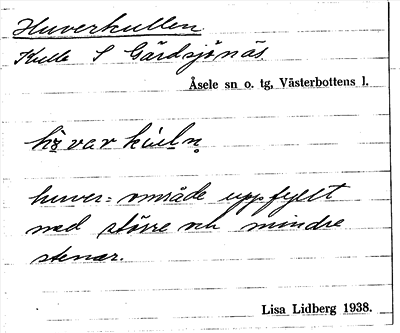 Huverkullen
Kulle S Gärdsjönäs.
Åsele sn o. tg, Västerbottens l.
huver = område uppfyllt
med större och mindre
stenar.
Lisa Lidberg 1938.